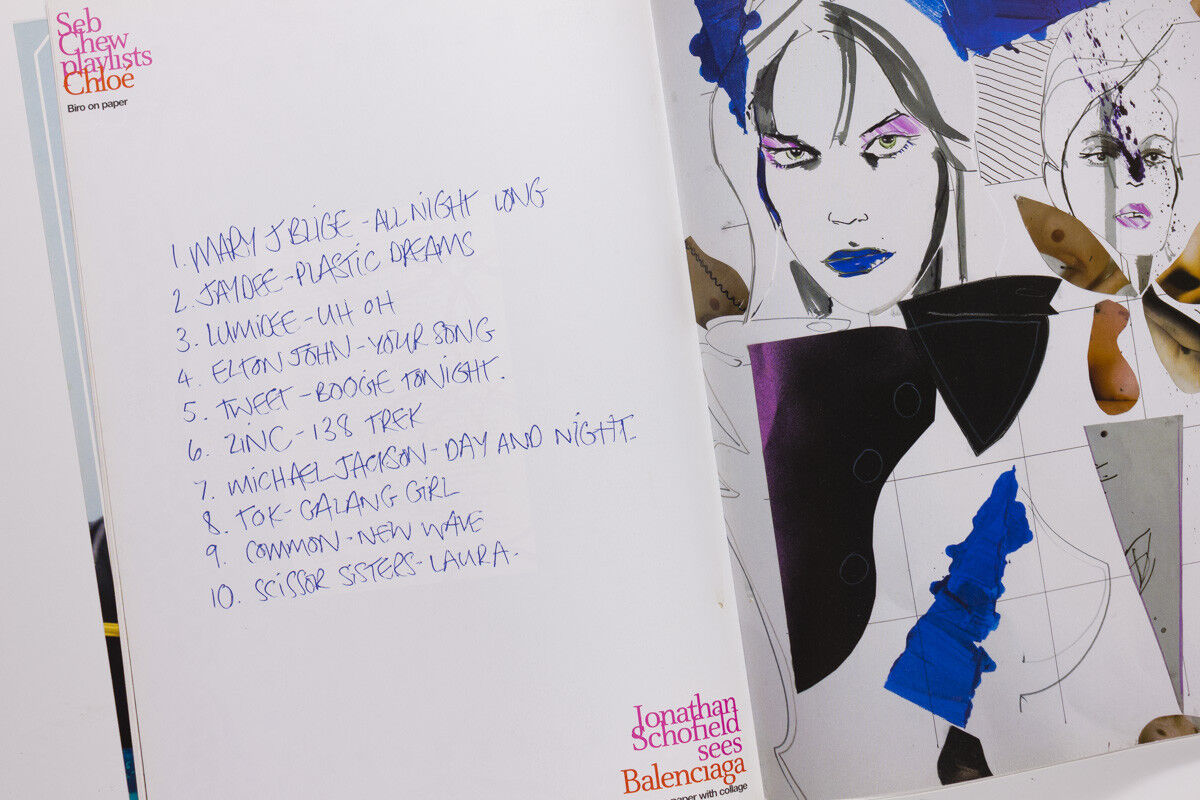 Seb
Chew
playlists
Chloé
Biro on paper
1. MARY J BLIGE - ALL NIGHT LONG
2. JAYDEE - PLASTIC DREAMS
3. LUMIDEE - UH OH
4. ELTON JOHN - YOUR SONG
5. TWEET - BOOGIE TONIGHT.
6. ZINC - 138 TREK
7. MICHAEL JACKSON - DAY AND NIGHT.
8. TOK - GALANG GIRL
9. COMMON - NEW WAVE
10. SCISSOR SISTERS - LAURA.
Jonathan
Schofield
sees
Balenciaga
paper with collage